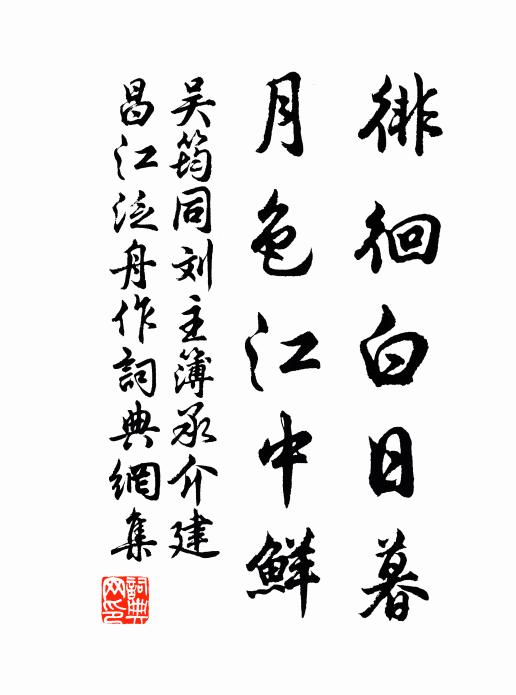 徘徊白日暮
月色江中鮮
吴筠同刘主簿承介建
昌江泛舟作詞典網集
詞典網印